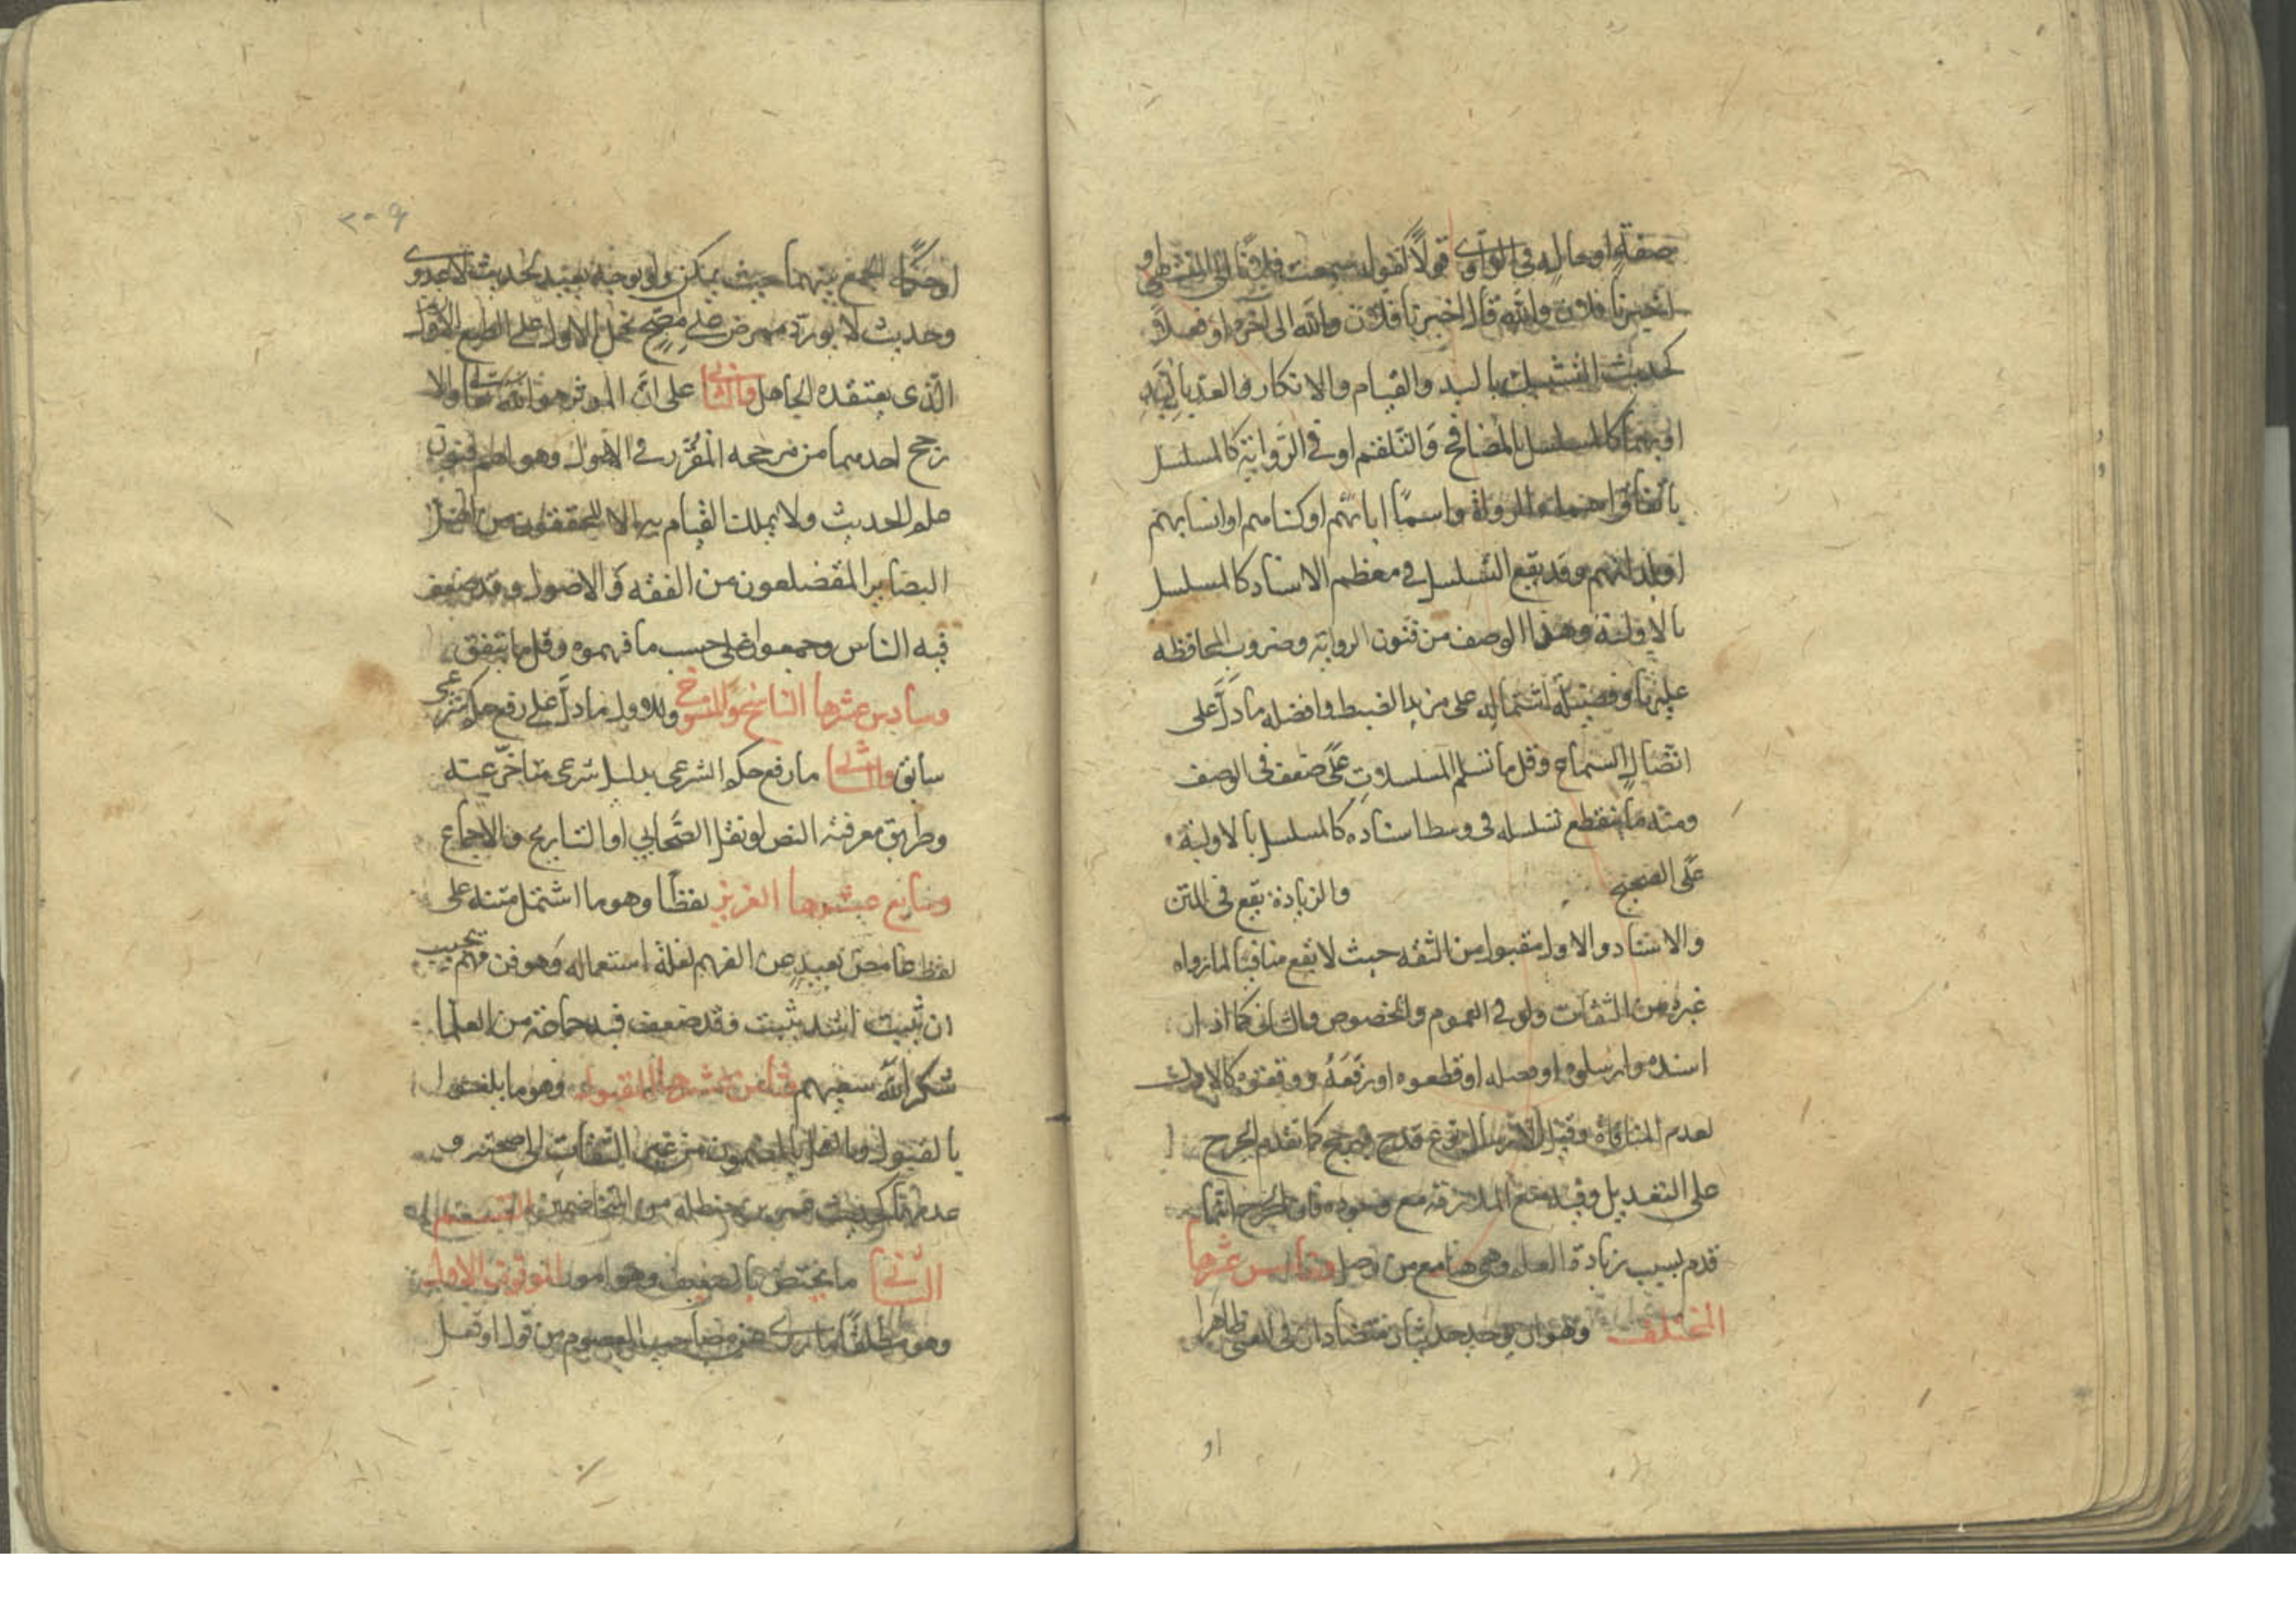 صفة او حالة في الراوي قولا كقوله سمعت فلانا الى المنتهى و
اخبرنا فلان والله قال اخبرنا فلان والله الى آخره او فعلا
كحديث التشبيك باليد والقيام والاتكاء والعد باليد
او بهما كالمسلسل بالمصافحة والتلقيم او في الرواية كالمسلسل
باتفاق اسماء الرواة واسماء ابائهم او كناهم او انسابهم
او بلدانهم وقد يقع التسلسل في معظم الاسناد كالمسلسل
بالاولية وهذا الوصف من فنون الرواية وضروب المحافظه
عليها وفضيلة اشتماله على مزيد الضبط وافضله ما دل على
اتصال السماع وقل ما تسلم المسلسلات عن ضعف في الوصف
ومنه ما ينقطع تسلسله في وسط اسناده كالمسلسل بالاولية
على الصحيح والزيادة يقع في المتن
والاسناد والاول مقبول من الثقه حيث لا يقع منافيا لما رواه
غيره من الثقات ولو في العموم والخصوص والثاني كما اذا
اسنده وارسلوه او وصله او قطعوه او رفعه ووقفوه كالاول
لعدم المنافاة وقيل الارسال نوع قدح فيرجح كما تقدم الجرح
على التعديل وفيه منع الملازمة مع وجوده فان الجرح انما
قدم بسبب زيادة العلم وهي هنا مع من وصل وخامس عشرها
المختلف وهو ان يوجد حديثان متضادان في المعنى ظاهرا
او
٢٠٩
او حكمه الجمع بينهما حيث يمكن ولو بوجه بعيد كحديث لا عدوى
وحديث لا يورد ممرض على مصح بحمل الاول على الطبع
الذي يعتقده الجاهل والثاني على ان المؤثر هو الله تعالى والا
رجح احدهما من مرجحه المقرر في الاصول وهو اهم فنون
علم الحديث ولا يملك القيام به الا المحققون من اهل
البصاير المتضلعون من الفقه والاصول وقد صنف
فيه الناس وجمعوا على حسب ما فهموه وقل ما يتفق
وسادس عشرها الناسخ والمنسوخ والاول ما دل على رفع حكم شرعي
سابق والثاني ما رفع حكمه الشرعي بدليل شرعي متاخر عنه
وطريق معرفته النص او نقل الصحابي او التاريخ والاجماع
وسابع عشرها الغريب لفظا وهو ما اشتمل متنه على
لفظ غامض بعيد عن الفهم لقلة استعماله وهو فن مهم يجب
ان تثبت اشد تثبت فقد صنف فيه جماعة من العلما
شكر الله سعيهم وثامن عشرها المقبول وهو ما تلقوه
بالقبول والعمل بالمضمون من غير التفات الى صحته و
عدمها كحديث عمر بن حنظله من المتخاصمين القسم
الثاني ما يختص بالضعيف وهو امور الموقوف الاول
وهو مطلقا ما روى عن مصاحب المعصوم من قول او فعل